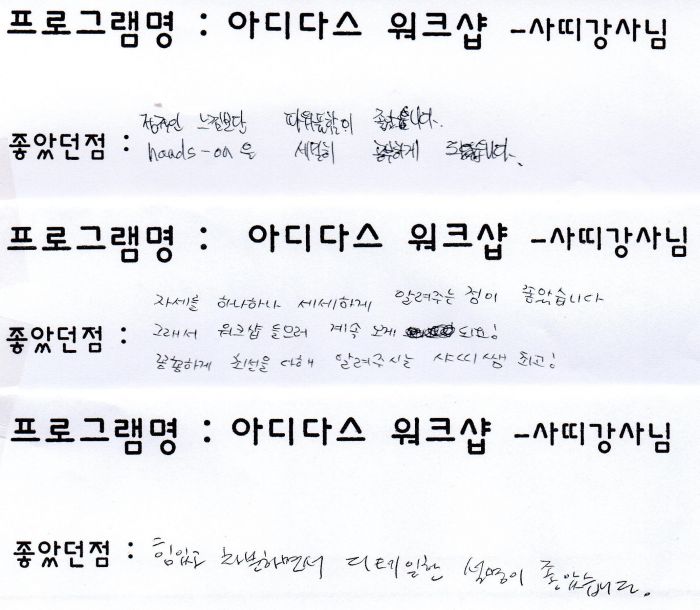 프로그램명 : 아디다스 워크샵 -사띠강사님
느낌보단 파워풀함이 좋았습니다.
좋았던점 : hands-on을 세밀히
프로그램명 : 아디다스 워크샵 -사띠강사님
자세를 하나하나 세세하게 알려주는 점이 좋았습니다
좋았던점 : 그래서 워크샵 들으러 계속 오게 되요!
꼼꼼하게 최선을 다해 알려주시는 사띠쌤 최고!
프로그램명 : 아디다스 워크샵 -사띠강사님
좋았던점 : 힘있고 차분하면서 디테일한 설명이 좋았습니다.